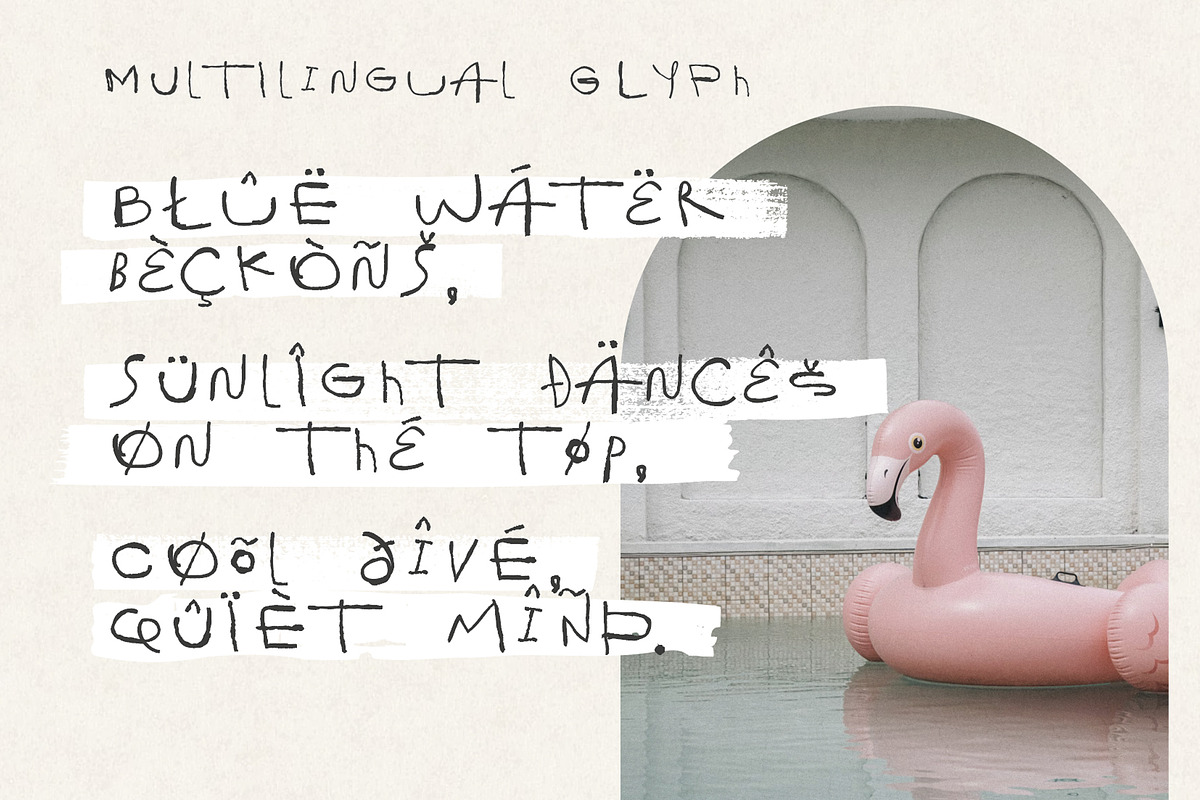 MULTILINGUAL GLYPh
BŁÛË WÁTËR
BÈÇKÒÑŠ,
SÜNLÎGhT ĐÄNCÊŠ
ØN ThÉ TØP,
CØÕL ƏÎVÉ,
QÛÏÈT MÎÑÞ.